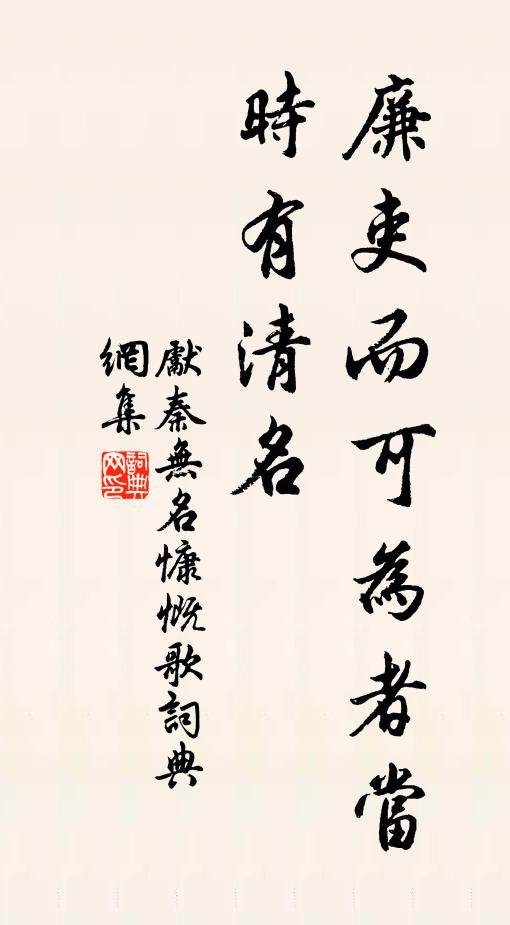 廉吏而可為者當
時有清名
獻秦無名慷慨歌詞典
網集
詞典
网印